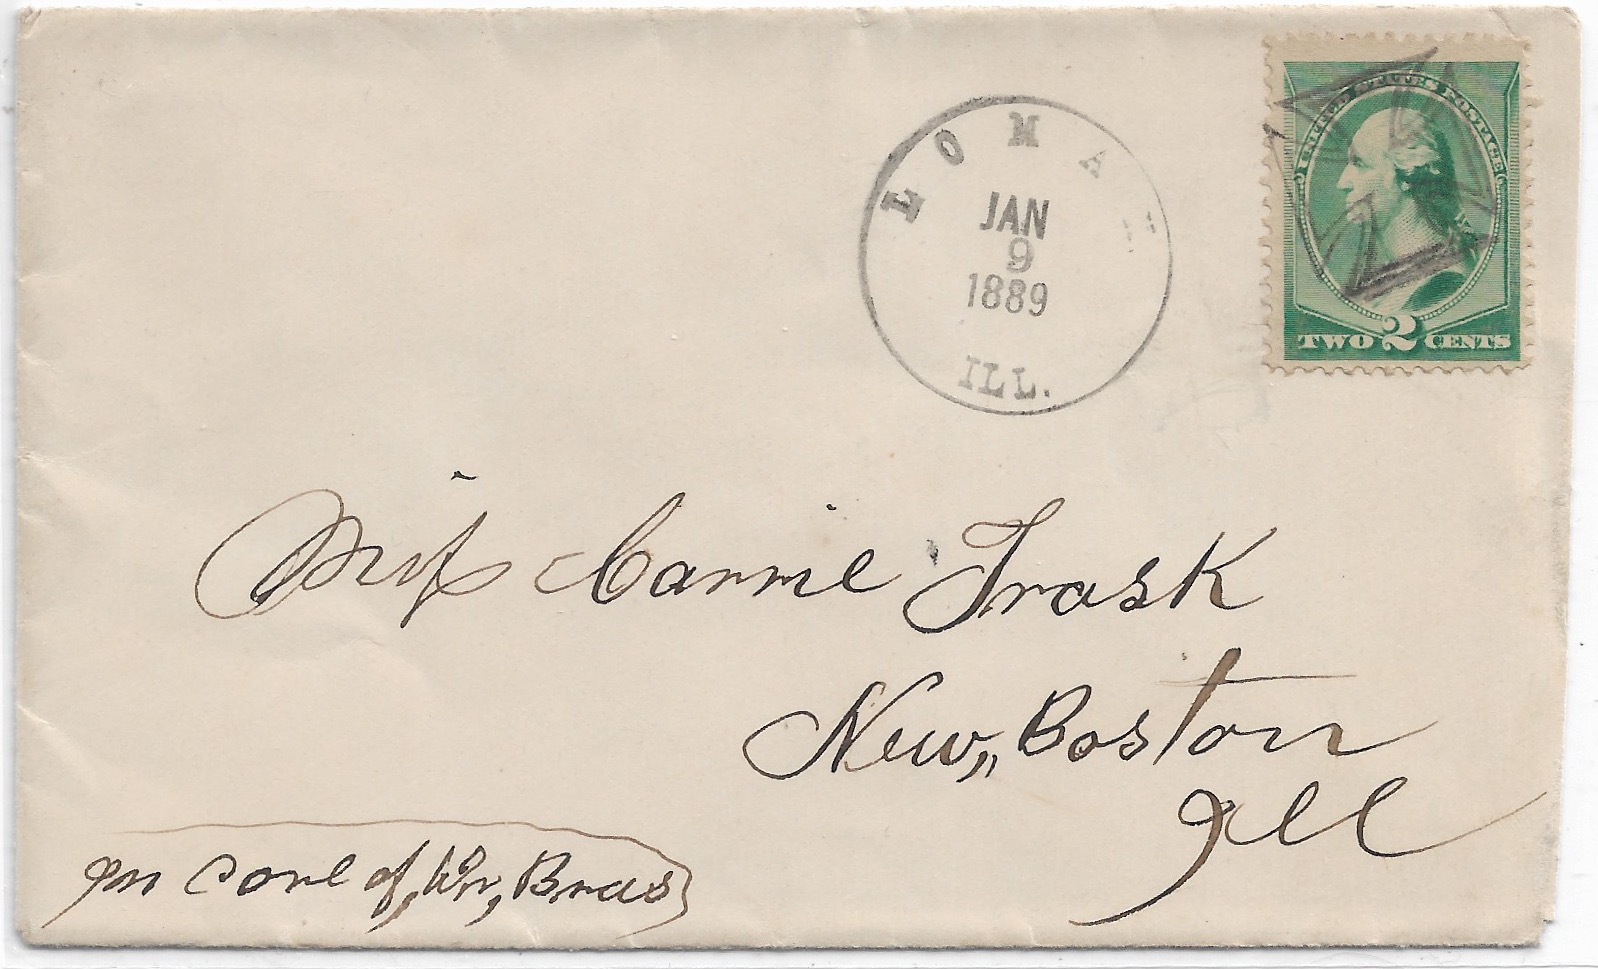 LOMA
JAN
9
1889
ILL.
UNITED STATES POSTAGE
TWO 2 CENTS
Miss Carrie Trask
New,, Boston
Ill
in care of,